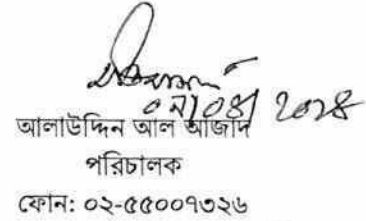 ০৭/০৪/২০২৪
আলাউদ্দিন আল আজাদ
পরিচালক
ফোন: ০২-৫৫০০৭৩২৬